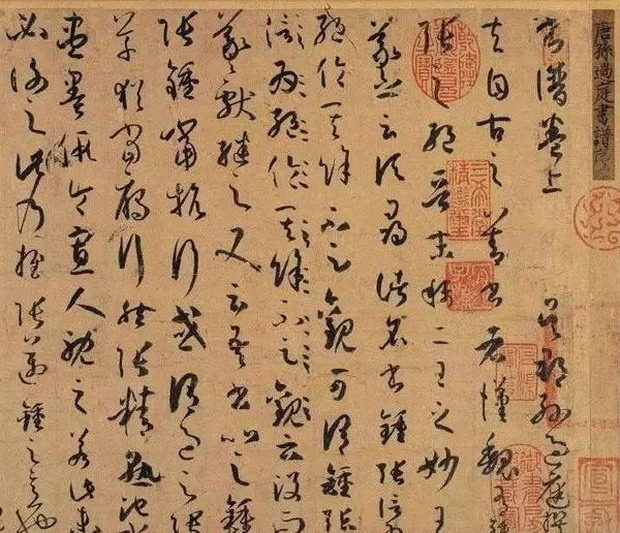 唐孫過庭書譜序
書譜卷上 吳郡孫過庭撰
夫自古之善書者漢魏有鍾
張之絕晉末稱二王之妙王
羲之云頃尋諸名書鍾張信為
絕倫其餘不足觀可謂鍾張
信為絕倫其餘不足觀云沒而
羲獻繼之又云吾書比之鍾
張鍾當抗行或謂過之張
草猶當鴈行然張精熟池水
盡墨假令寡人耽之若此未
必謝之此乃推張邁鍾之意